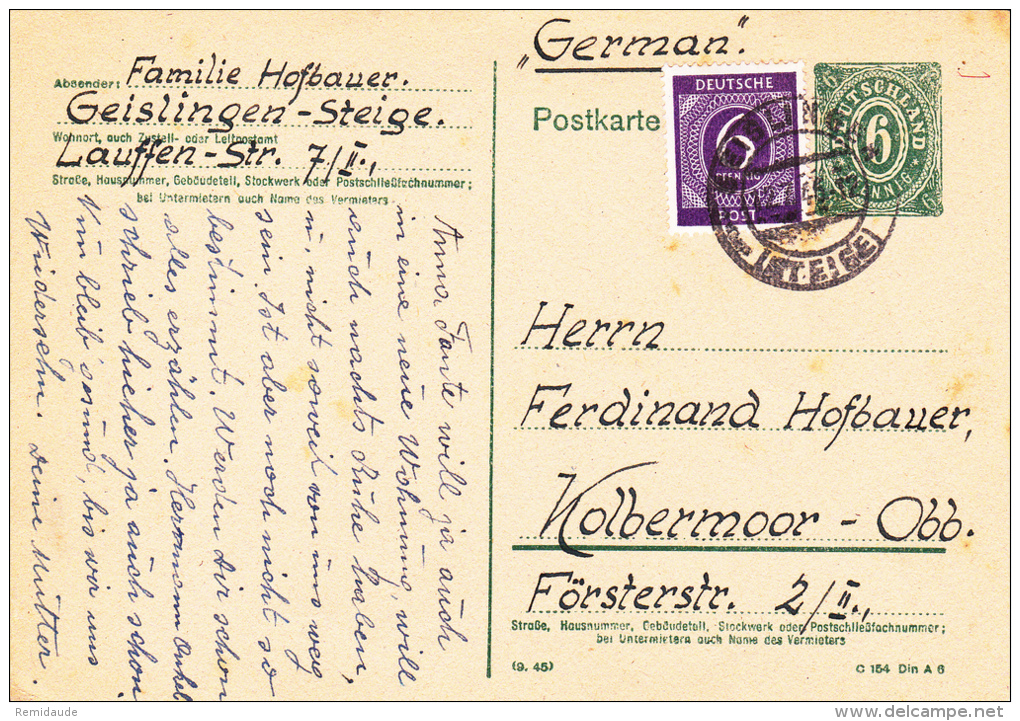 „German".
Absender: Familie Hofbauer.
Geislingen-Steige.
Wohnort, auch Zustell- oder Leitpostamt
Lauffen-Str. 7/II.,
Straße, Hausnummer, Gebäudeteil, Stockwerk oder Postschließfachnummer;
bei Untermietern auch Name des Vermieters
Anna Tante will ja auch
in eine neue Wohnung, will
auch nachts Ruhe haben,
u. nicht soweit von uns weg
sein. Ist aber noch nicht so
bestimmt. Werden dir schon
alles erzählen. Hermann Onkel
schrieb hieher ja auch schon
Nun bleib gesund, bis wir uns
Wiedersehn. Deine Mutter.
Postkarte
DEUTSCHE
6
PFENNIG
POST
DEUTSCHLAND
6
PFENNIG
(STEIGE)
Herrn
Ferdinand Hofbauer,
Kolbermoor - Obb.
Försterstr. 2/II.,
Straße, Hausnummer, Gebäudeteil, Stockwerk oder Postschließfachnummer;
bei Untermietern auch Name des Vermieters
(9. 45)
C 154 Din A 6
Remidaude
delcampe.net